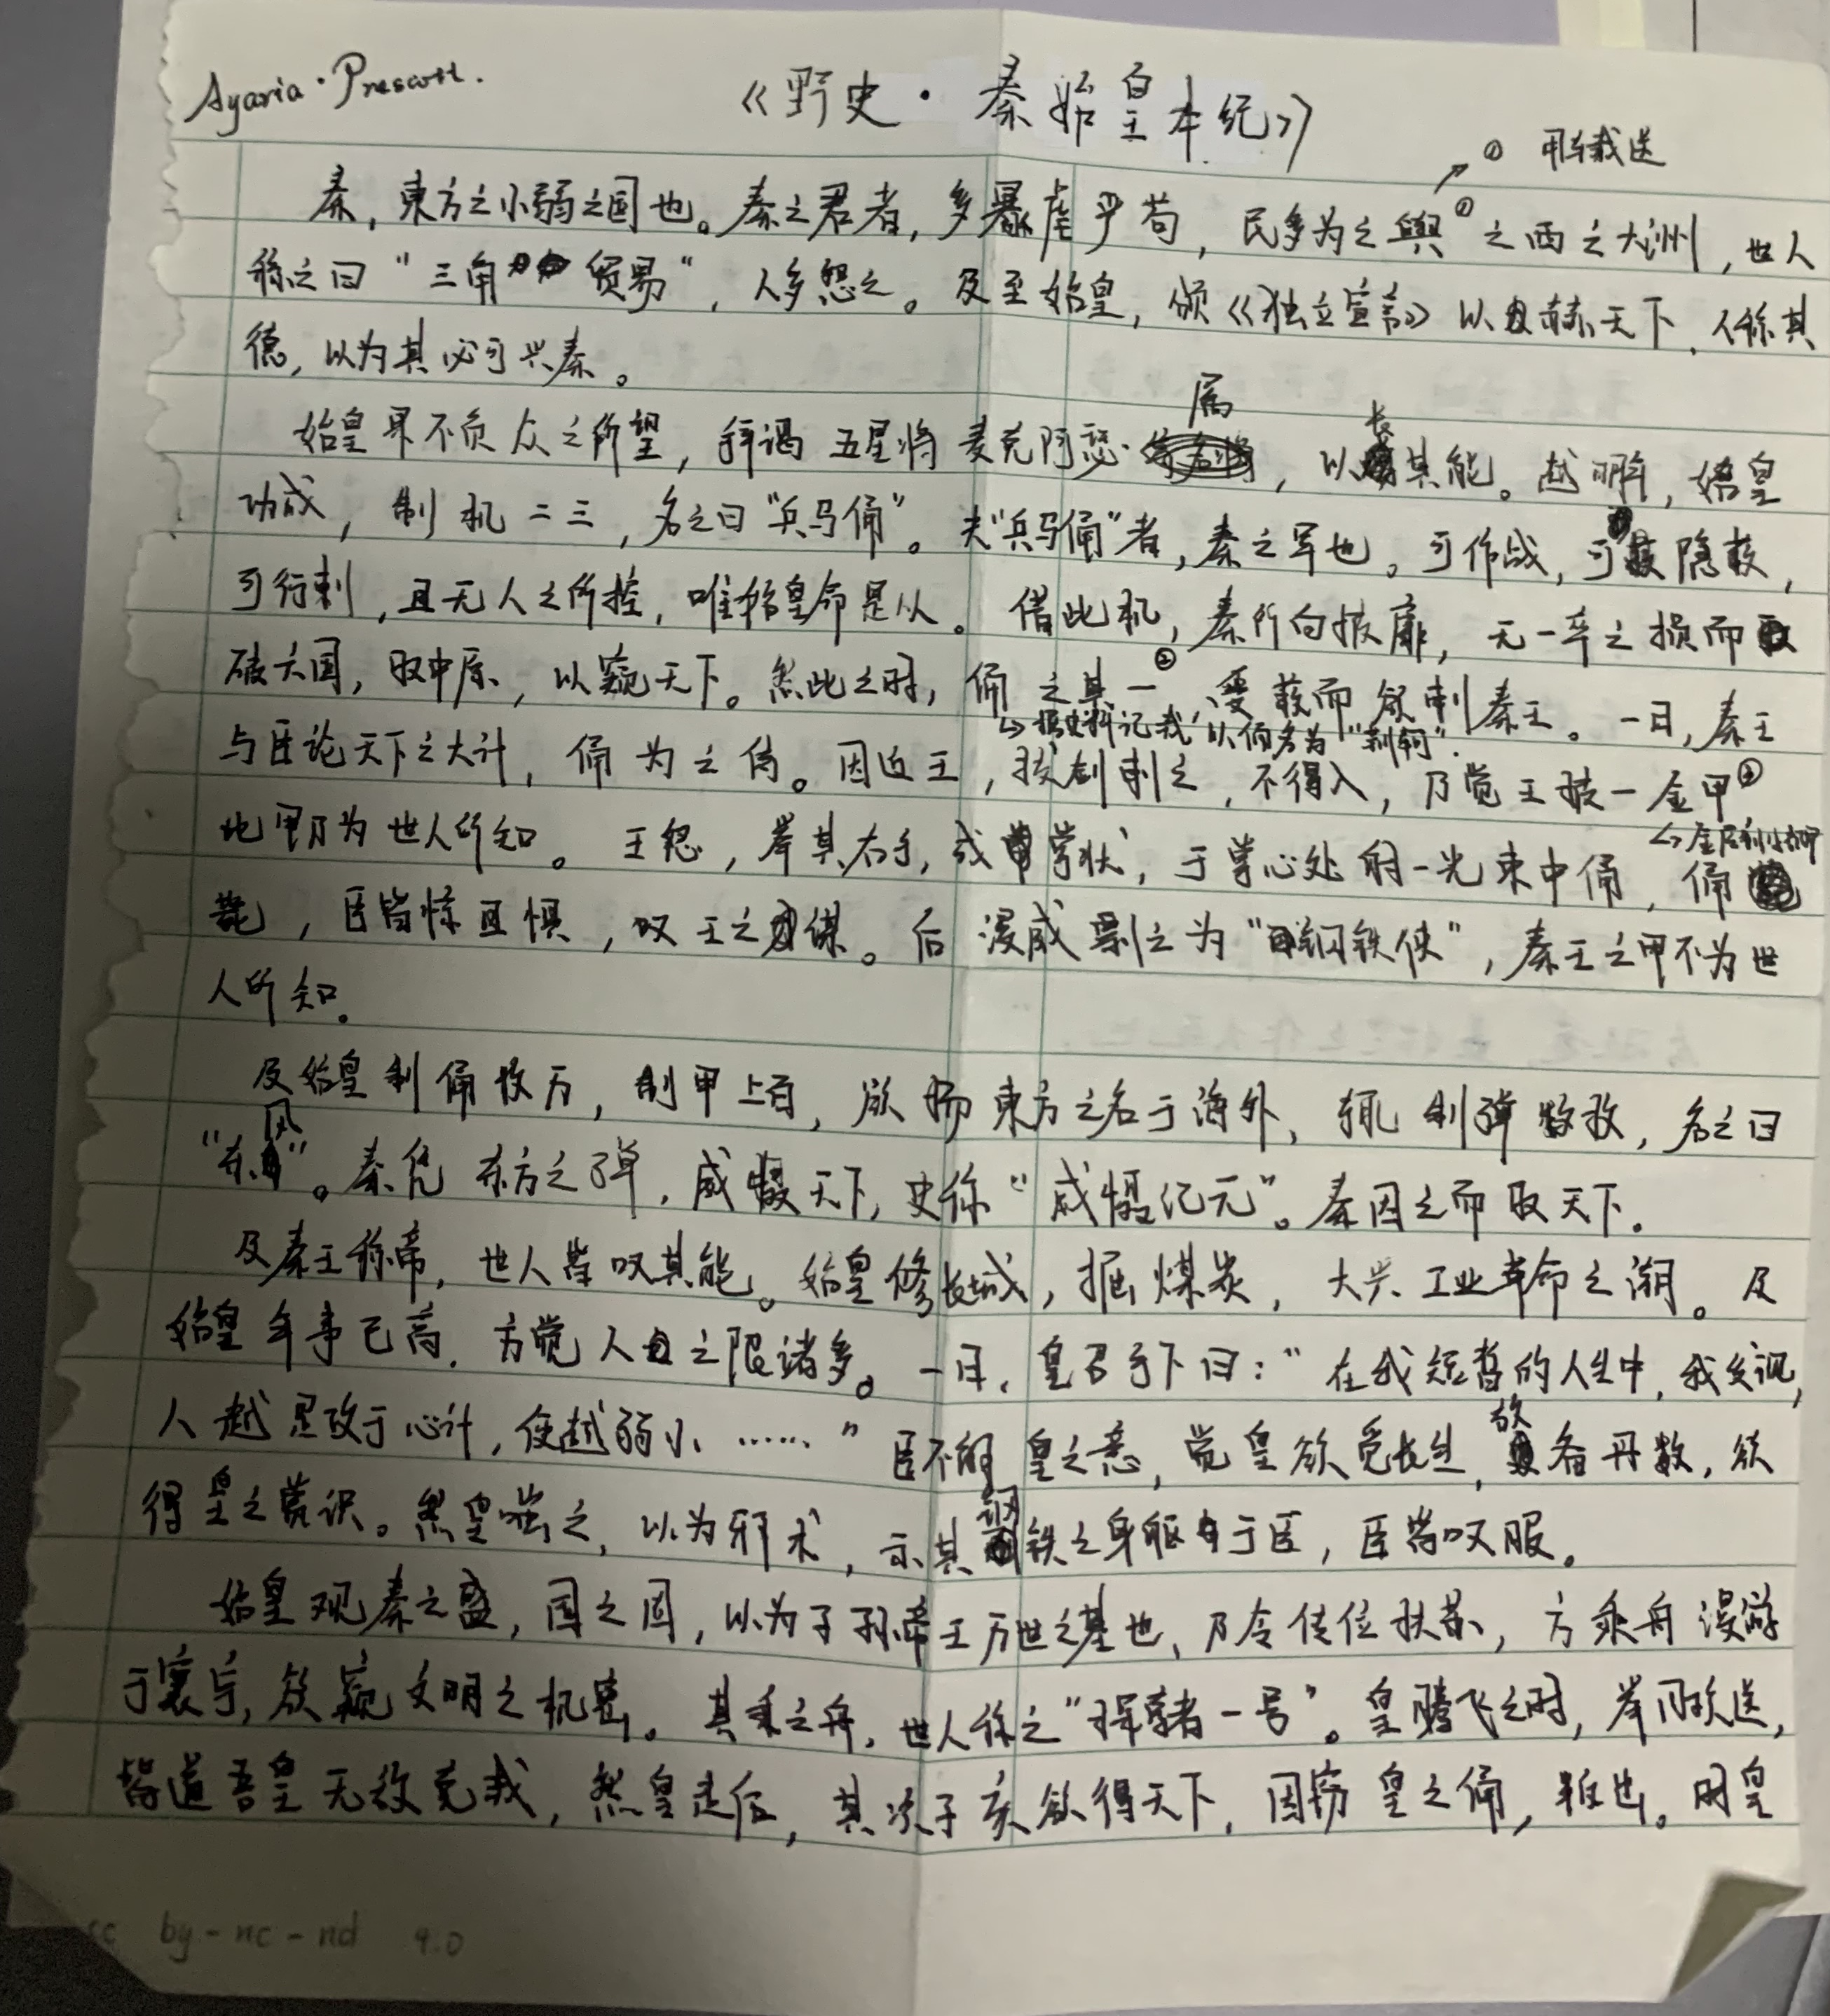 Ayaria · Prescott.
《野史·秦始皇本纪》
① 用车载送
秦，東方之小弱之国也。秦之君者，多暴虐严苟，民多为之舆①之西之大洲，世人
称之曰“三角贸易”，人多怨之。及至始皇，颁《独立宣言》以赫天下，人称其
德，以为其必可兴秦。
始皇果不负众之所望，拜谒五星将麦克阿瑟·属，以长其能。越明年，始皇
功成，制机二三，名之曰“兵马俑”。夫“兵马俑”者，秦之军也。可作战，可隐蔽，
可行刺，且无人之所控，唯始皇命是从。借此机，秦所向披靡，无一卒之损而
破六国，取中原，以窥天下。然此之时，俑之其一②，受蔽而欲刺秦王。一日，秦王
↳据史料记载，以俑者为“荆轲”.
与臣论天下之大计，俑为之侍。因近王，拔剑刺之，不得入，乃觉王披一金甲③
此甲乃为世人所知。王怒，举其右手，成掌状，于掌心处射一光束中俑，俑
毙，臣皆惊且惧，叹王之谋。后漫威剽之为“钢铁侠”，秦王之甲不为世
人所知.
及始皇制俑数万，制甲上百，欲扬東方之名于海外，辄制弹数枚，名之曰
“东风”。秦凭东方之弹，威慑天下，史称“威慑纪元”。秦因之而取天下.
及秦王称帝，世人皆叹其能。始皇修长城，掘煤炭，大兴工业革命之潮。及
始皇年事已高，方觉人之限诸多。一日，皇召子下曰：“在我短暂的人生中，我发现，
人越是攻于心计，便越弱小……”臣不解皇之意，觉皇欲觅长生，故备丹数，欲
得皇之赏识。然皇嗤之，以为邪术，示其钢铁之身躯于臣，臣皆叹服。
始皇观秦之盛，国之固，以为子孙帝王万世之基也，乃令传位扶苏，方乘舟漫游
于寰宇，欲窥文明之机密。其乘之舟，世人称之“探索者一号”。皇腾飞之时，举国欢送，
皆道吾皇无敌克我，然皇走后，其次子亥欲得天下，因窃皇之俑，，出。时皇
cc by-nc-nd 4.0